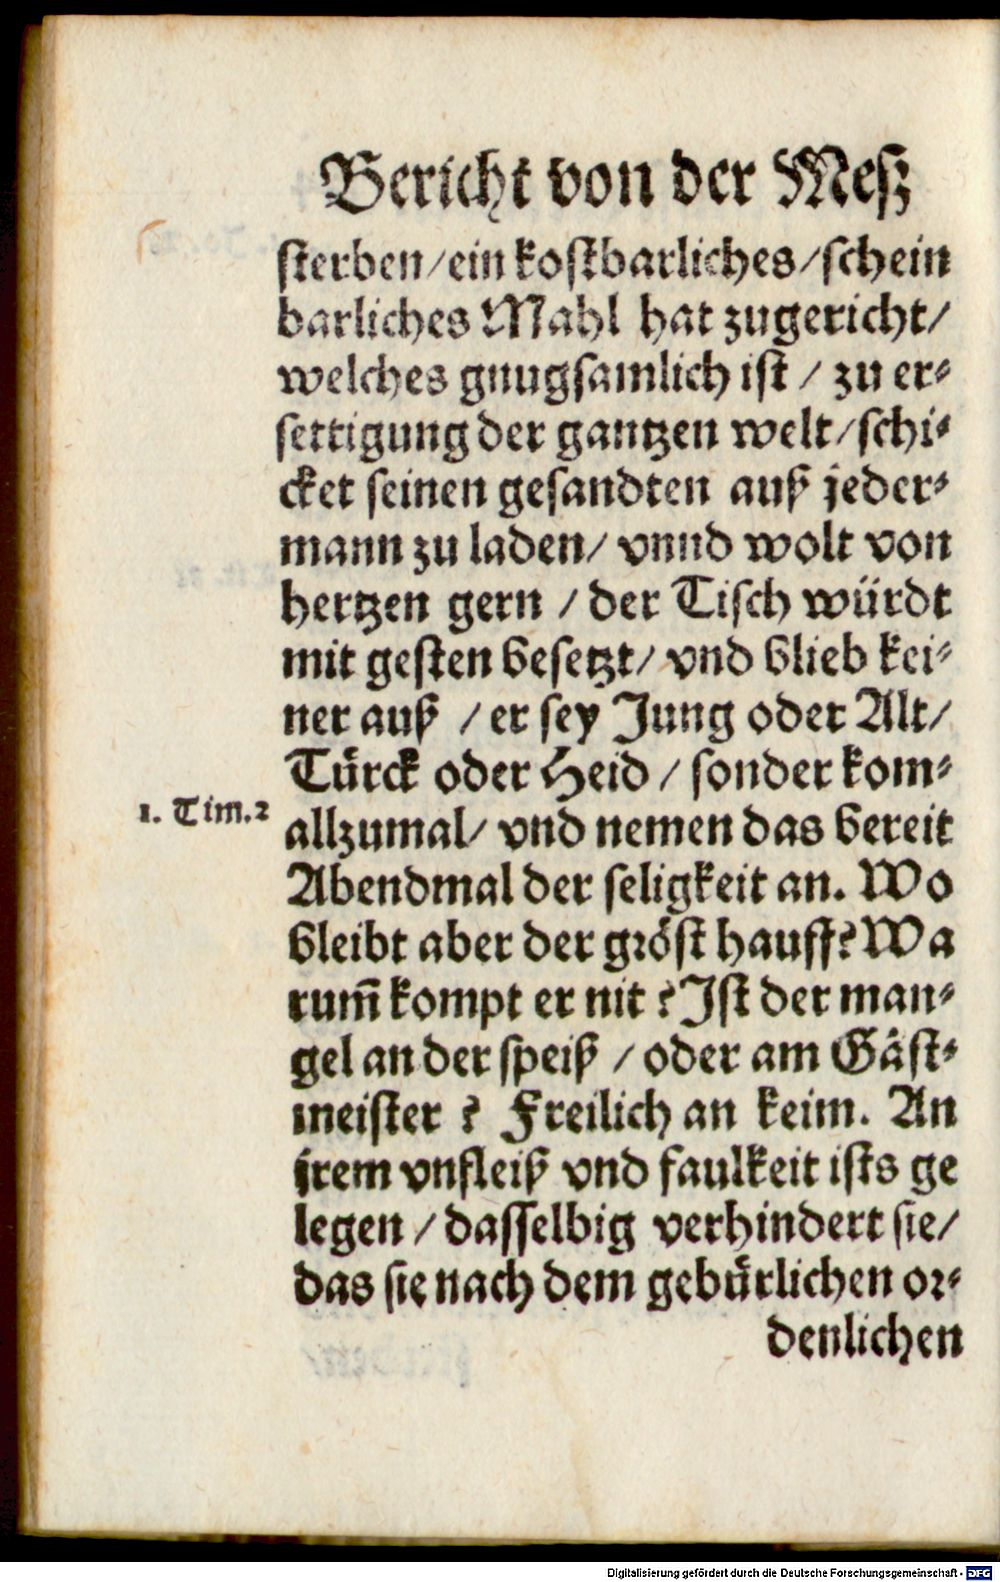 Bericht von der Meß
sterben/ein kostbarliches/schein
barliches Mahl hat zugericht/
welches gnugsamlich ist / zu er⸗
settigung der gantzen welt/schi⸗
cket seinen gesandten auß jeder⸗
mann zu laden/ vnnd wolt von
hertzen gern / der Tisch würdt
mit gesten besetzt/ vnd blieb kei⸗
ner auß / er sey Jung oder Alt/
Türck oder Heid / sonder kom⸗
1. Tim.2
allzumal/ vnd nemen das bereit
Abendmal der seligkeit an. Wo
bleibt aber der gröst hauff? Wa
rum̃ kompt er nit ? Ist der man⸗
gel an der speiß / oder am Gäst⸗
meister ? Freilich an keim. An
jrem vnfleiß vnd faulkeit ists ge
legen / dasselbig verhindert sie/
das sie nach dem gebürlichen or⸗
denlichen
Digitalisierung gefördert durch die Deutsche Forschungsgemeinschaft - DFG